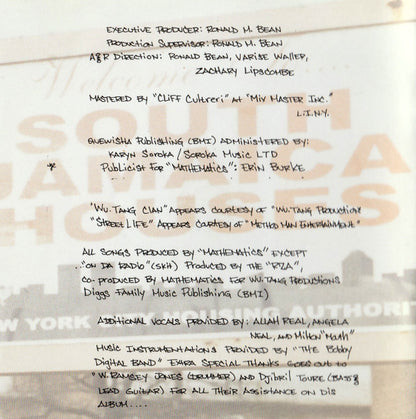 Executive Producer: Ronald M. Bean
Production Supervisor: Ronald M. Bean
A&R Direction: Ronald Bean, Varise Waller,
Zachary Lipscombe
Mastered by "Cliff Cultreri" at "Mix Master Inc."
L.I.N.Y.
Quewisha Publishing (BMI) Administered by:
Karyn Soroka / Soroka Music LTD
* Publicist for "Mathematics": Erin Burke
"Wu-Tang Clan" appears courtesy of "Wu-Tang Productions"
"Street Life" appears courtesy of "Method Man Entertainment"
All songs produced by "Mathematics" except
"On Da Radio" (skit) Produced by the "RZA",
co-produced by Mathematics for Wu-Tang Productions
Diggs Family Music Publishing (BMI)
Additional vocals provided by: Allah Real, Angela
Neal, and Milton "Mush"
Music Instrumentations provided by "The Bobby
Digital Band" Extra Special Thanks goes out to
"W. Ramsey Jones (Drummer) and Djibril Toure (Bass &
Lead Guitar) for all their assistance on dis
album....
Welcome
SOUTH
JAMAICA
HOUSES
NEW YORK CITY HOUSING AUTHORITY